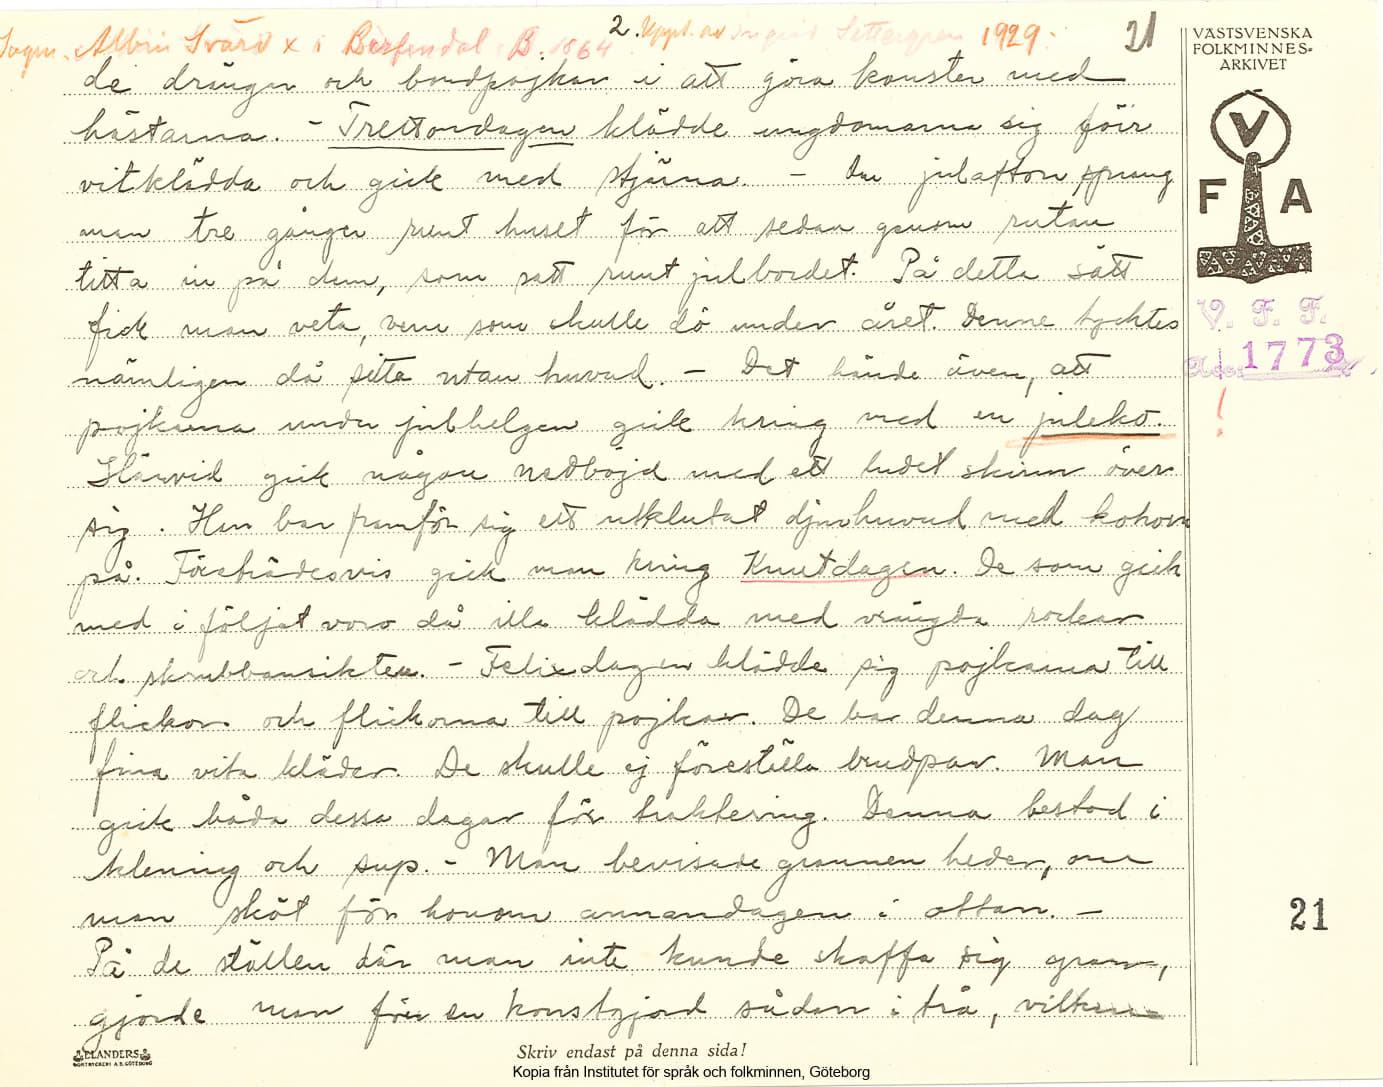 Sagm. Albin Svärd x i Bärfendal, B. 1864 2. Uppt. av Ingrid Settergren 1929. 21
de drängar och bondpojkar i att göra konster med
hästarna. – Trettondagen klädde ungdomarna sig för
vitklädda och gick med stjärna. – Den julafton sprang
man tre gånger runt huset för att sedan genom rutan
titta in på dem, som satt runt julbordet. På detta sätt
fick man veta, vem som skulle dö under året. Denne tycktes
nämligen då sitta utan huvud. – Det hände även, att
pojkarna under julhelgen gick kring med en juleko.
Härvid gick någon nedböjd med ett ludet skinn över
sig. Han bar framför sig ett utklutat djurhuvud med kohorn
på. Företrädesvis gick man kring Knutdagen. De som gick
med i följet voro då illa klädda med vrängda rockar
och skrubbansikten. – Felixdagen klädde sig pojkarna till
flickor och flickorna till pojkar. De bar denna dag
fina vita kläder. De skulle ej föreställa brudpar. Man
gick båda dessa dagar för traktering. Denna bestod i
klening och sup. – Man bevisade grannen heder, om
man sköt för honom annandagen i ottan. –
På de ställen där man inte kunde skaffa sig gran,
gjorde man förr en konstgjord sådan i trä, vilken
VÄSTSVENSKA
FOLKMINNES-
ARKIVET
V
F A
V. F. F.
1773
!
21
ELANDERS
BOKTRYCKERI A.B. GÖTEBORG
Skriv endast på denna sida!
Kopia från Institutet för språk och folkminnen, Göteborg